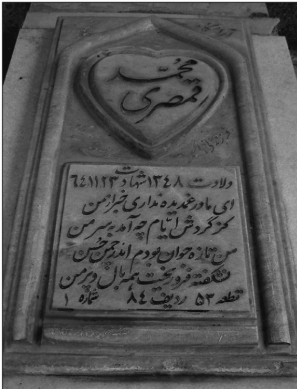 محمد
قمصری
ولادت ۱۳۴۸ شهادت ۶۴٫۱۱٫۲۳
ای مادر غمدیده نداری خبر از من
کز گردش ایام چه آمد بسر من
من تازه جوان بودم اندر چمن حسن
نشکفته فرو ریخت همه بال و پر من
قطعه ۵۳ ردیف ۸۴ شماره ۱